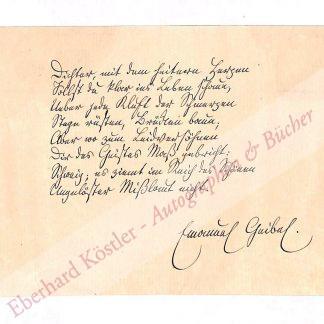 Dichter, mit dem heitern Herzen
Sollst du klar ins Leben schaun,
Ueber jede Kluft der Schmerzen
Stege rüsten, Brücken baun;
Aber wo zum Leidversöhnen
Dir des Geistes Maß gebricht:
Schweig; es ziemt im Reich des Schönen
Ungelöster Mißlaut nicht.
Emanuel Geibel.
Eberhard Köstler - Autographen & Bücher